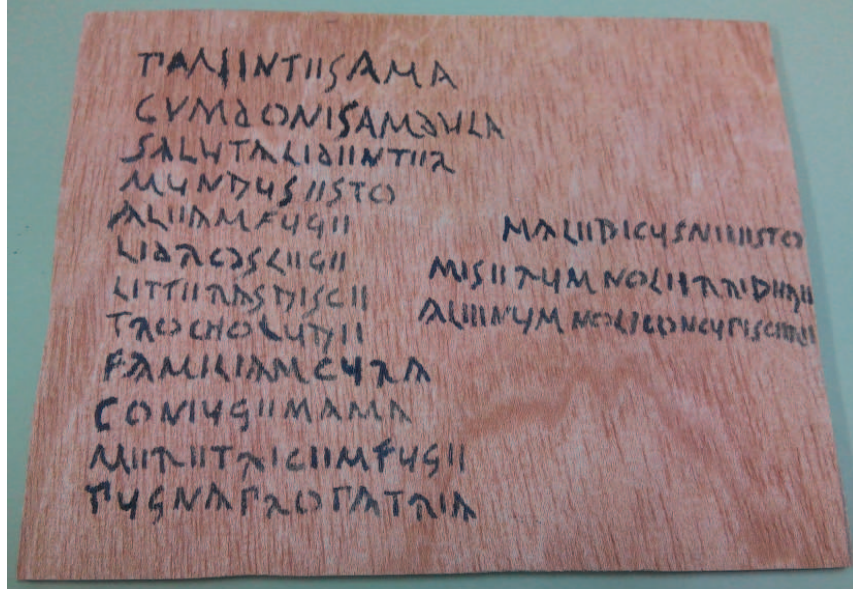 PARENTESAMA
CVMBONISAMBVLA
SALVTALIBENTER
MVNDVSESTO
ALEAMFVGE
LIBROSLEGE
LITTERASDISCE
TROCHOLVDE
FAMILIAMCVRA
CONIVGEMAMA
MERETRICEMFVGE
PVGNAPROPATRIA
MALEDICVSNEESTO
MISERVM NOLIIRRIDERE
ALIENVM NOLICONCVPISCERE